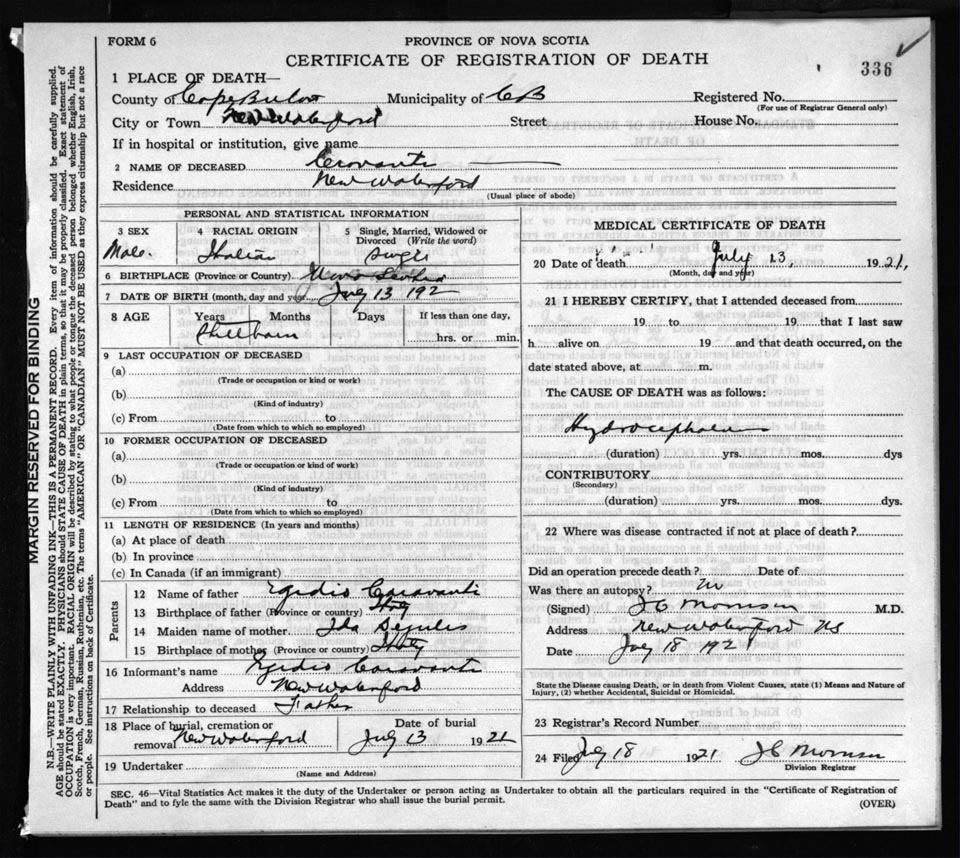 FORM 6
PROVINCE OF NOVA SCOTIA
CERTIFICATE OF REGISTRATION OF DEATH
336
1 PLACE OF DEATH—
County of Cape Breton Municipality of CB Registered No.
(For use of Registrar General only)
City or Town New Waterford Street House No.
If in hospital or institution, give name
2 NAME OF DECEASED
Residence New Waterford
(Usual place of abode)
PERSONAL AND STATISTICAL INFORMATION
3 SEX 4 RACIAL ORIGIN 5 Single, Married, Widowed or Divorced (Write the word)
Male. Italian Single
6 BIRTHPLACE (Province or Country) Nova Scotia
7 DATE OF BIRTH (month, day and year) July 13 192
8 AGE Years Months Days If less than one day,
hrs. or min.
Stillborn
9 LAST OCCUPATION OF DECEASED
(a)
(Trade or occupation or kind or work)
(b)
(Kind of industry)
(c) From to
(Date from which to which so employed)
10 FORMER OCCUPATION OF DECEASED
(a)
(Trade or occupation or kind of work)
(b)
(Kind of industry)
(c) From to
(Date from which to which so employed)
11 LENGTH OF RESIDENCE (In years and months)
(a) At place of death
(b) In province
(c) In Canada (if an immigrant)
Parents
12 Name of father Egidio Caravanti
13 Birthplace of father (Province or country) Italy
14 Maiden name of mother Ida
15 Birthplace of mother (Province or country) Italy
16 Informant's name Egidio Caravanti
Address New Waterford
17 Relationship to deceased Father
18 Place of burial, cremation or removal New Waterford Date of burial July 13 1921
19 Undertaker
(Name and Address)
MEDICAL CERTIFICATE OF DEATH
20 Date of death July 13, 1921,
(Month, day and year)
21 I HEREBY CERTIFY, that I attended deceased from
19 to 19 that I last saw
h alive on 19 and that death occurred, on the
date stated above, at m.
The CAUSE OF DEATH was as follows:
Hydrocephalus
(duration) yrs. mos. dys
CONTRIBUTORY
(Secondary)
(duration) yrs. mos. dys.
22 Where was disease contracted if not at place of death?
Did an operation precede death? Date of
Was there an autopsy? No
(Signed) J C Morrison M.D.
Address New Waterford NS
Date July 18 1921
State the Disease causing Death, or in death from Violent Causes, state (1) Means and Nature of
Injury, (2) whether Accidental, Suicidal or Homicidal.
23 Registrar's Record Number
24 Filed July 18 1921 J C Morrison
Division Registrar
SEC. 46—Vital Statistics Act makes it the duty of the Undertaker or person acting as Undertaker to obtain all the particulars required in the "Certificate of Registration of
Death" and to fyle the same with the Division Registrar who shall issue the burial permit.
(OVER)
MARGIN RESERVED FOR BINDING
N.B.—WRITE PLAINLY WITH UNFADING INK—THIS IS A PERMANENT RECORD. Every item of information should be carefully supplied.
AGE should be stated EXACTLY. PHYSICIANS should STATE CAUSE OF DEATH in plain terms, so that it may be properly classified. Exact statement of
OCCUPATION is very important. RACIAL ORIGIN will be described by stating to what people or tongue the deceased person belonged whether English, Irish,
Scotch, French, German, Russian, Ruthenian, etc. The terms "AMERICAN" OR "CANADIAN" MUST NOT BE USED as they express citizenship but not a race
or people. See instructions on back of Certificate.